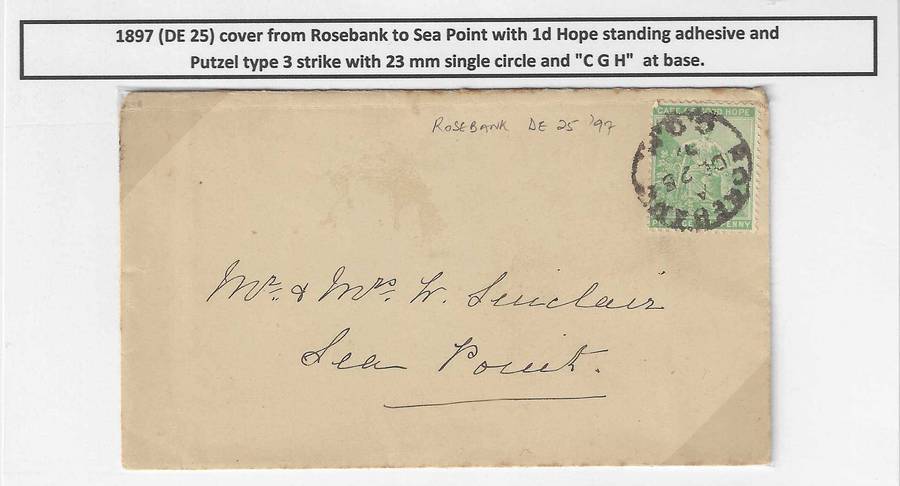 1897 (DE 25) cover from Rosebank to Sea Point with 1d Hope standing adhesive and
Putzel type 3 strike with 23 mm single circle and "C G H" at base.
ROSEBANK DE 25 '97
CAPE OF GOOD HOPE
PENNY
DE 25
97
Mr. & Mrs. W. Sinclair
Sea Point.